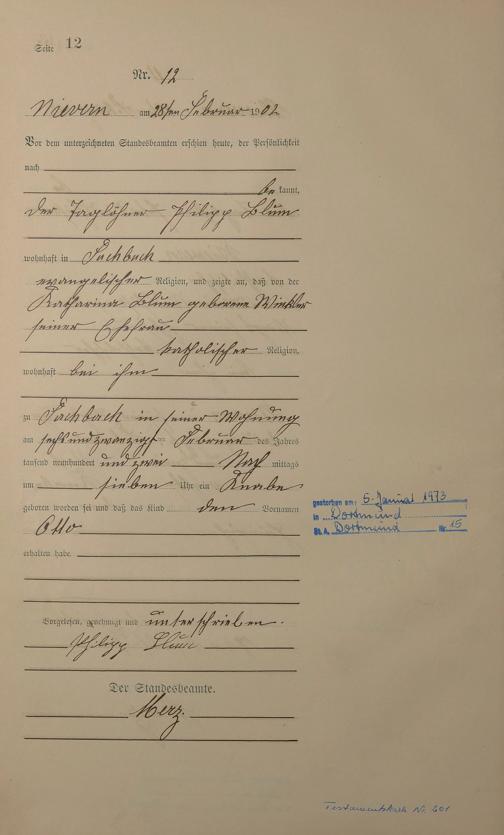 Seite 12
Nr. 12
Nievern am 28ten Februar 1902
Vor dem unterzeichneten Standesbeamten erschien heute, der Persönlichkeit
nach
be kannt,
der Taglöhner Philipp Blum
wohnhaft in Fachbach
evangelischer Religion, und zeigte an, daß von der
Katharina Blum geborene Winkler
seiner Ehefrau
katholischer Religion,
wohnhaft bei ihm
zu Fachbach in seiner Wohnung
am sechsundzwanzigsten Februar des Jahres
tausend neunhundert und zwei Nach mittags
um sieben Uhr ein Knabe
geboren worden sei und daß das Kind den Vornamen
Otto
erhalten habe.
Vorgelesen, genehmigt und unterschrieben.
Philipp Blum
Der Standesbeamte.
Merz.
gestorben am: 5. Januar 1973
in Dortmund
St.A. Dortmund Nr. 15
Testamentskartei Nr. 601